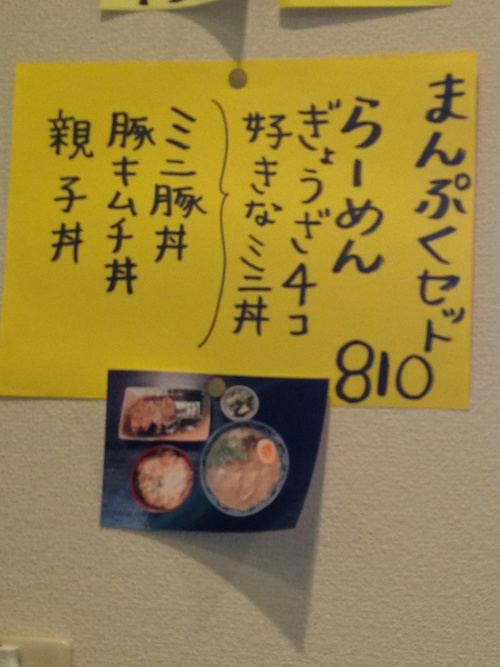 まんぷくセット
810
らーめん
ぎょうざ4コ
好きなミニ丼
ミニ豚丼
豚キムチ丼
親子丼